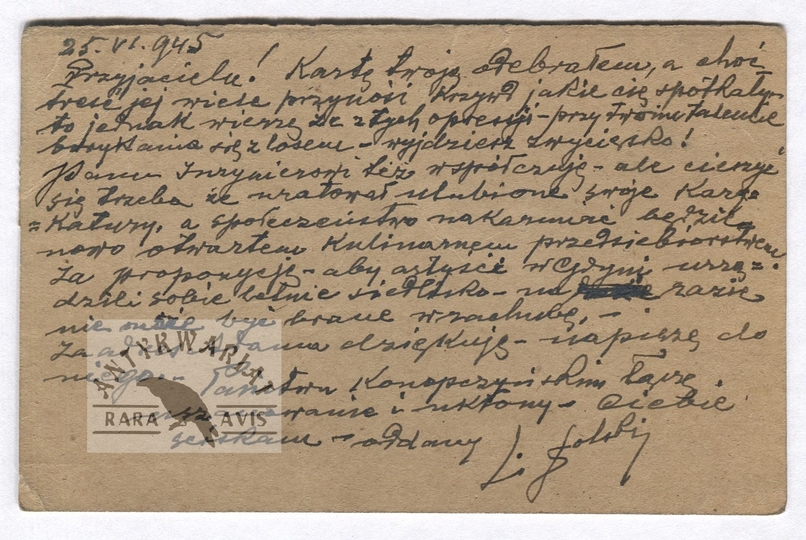 25.VI.945
Przyjacielu! Kartę twoję odebrałem, a choć
treść jej wiele przynosi krzywd jakie cię spotkały-
to jednak wierzę że z tych opresyji - przy twoim talencie
borykania się z losem - wyjdziesz zwycięsko!
Panu Inżynierowi też współczuję - ale cieszyć
się trzeba że uratował ulubione swoje Kary=
=katury, a społeczeństwo nakarmić będzie
nowo otwartem kulinarnem przedsiębiorstwem.
Za propozycję - aby artyści w Gdyni urzą=
dzili sobie letnie siedlisko - na razie
nie może być brane w rachubę, -
Za adres dziękuję - napiszę do
niego. - Państwu Konopczyńskim łączę
uszanowanie i ukłony - Ciebie
ściskam - oddany L. Solski
ANTYKWARIAT
RARA AVIS